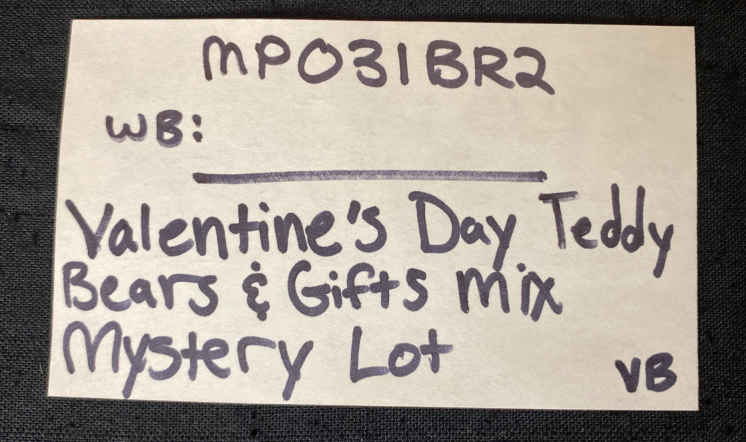 MP031BR2
WB:
Valentine's Day Teddy
Bears & Gifts Mix
Mystery Lot
VB